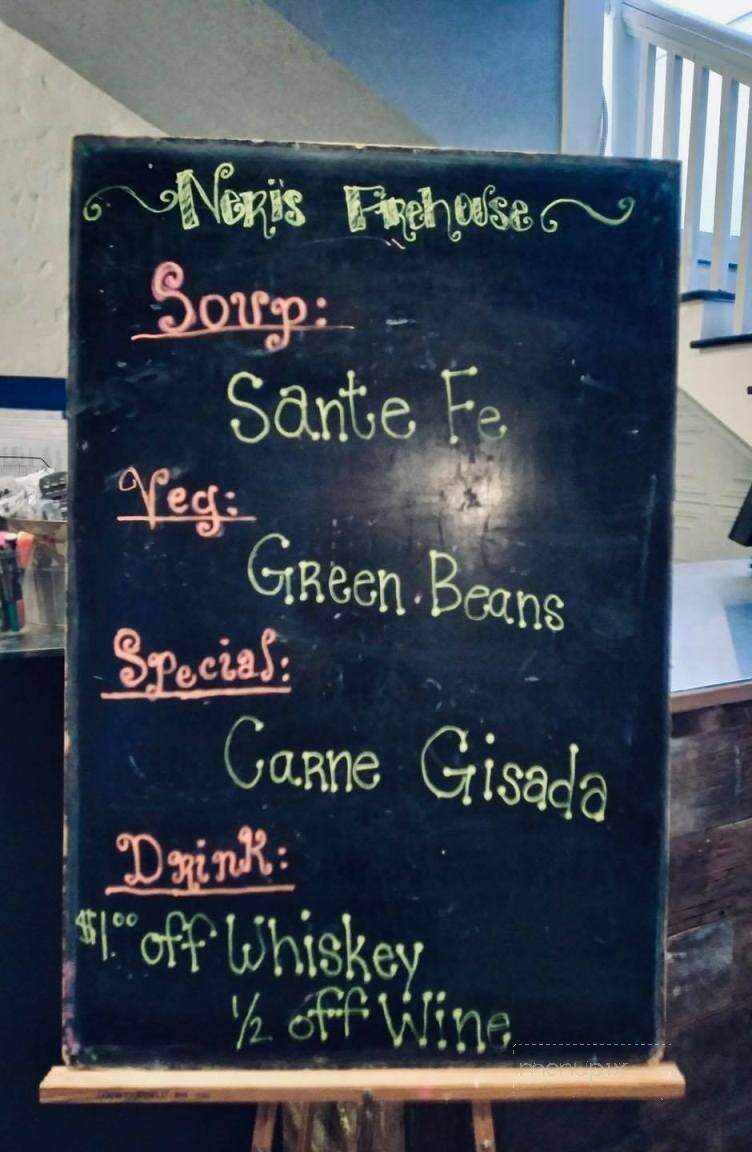 Neri's Firehouse
Soup:
Sante Fe
Veg:
Green Beans
Special:
Carne Gisada
Drink:
$1.00 off Whiskey
1/2 off Wine
menupix